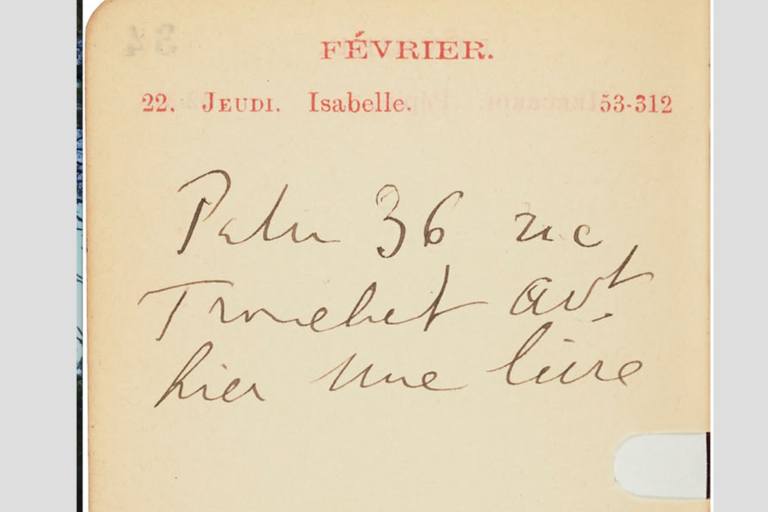 FÉVRIER.
22. JEUDI. Isabelle. 53-312
36 rue
Tronchet avt.
hier une livre